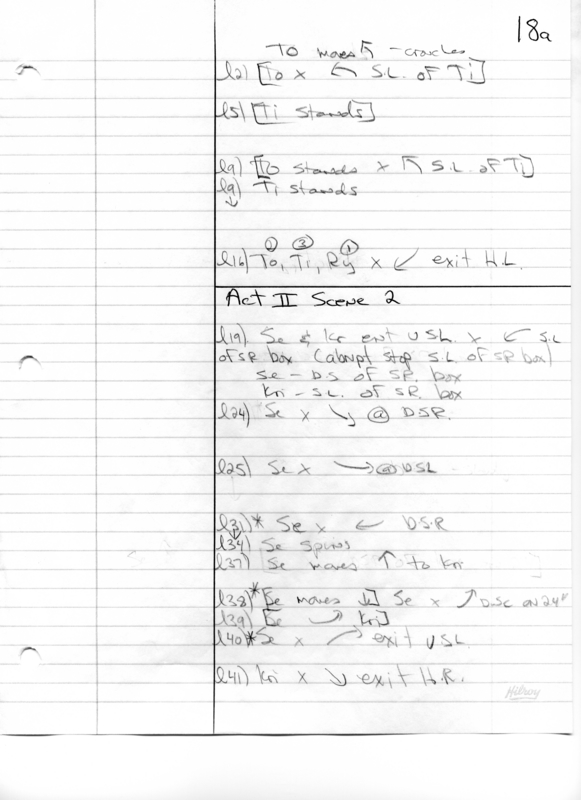 18a
To moves ↖ - crouches
l2) [To x ↖ S.L. of Ti]
l5) [Ti stands]
l9) [To stands x ↖ S.L. of Ti]
l9) Ti stands
↓
l16) To, Ti, Ry x ↙ exit H.L.
② ③ ①
Act II Scene 2
l19) Se & Kri ent USL x ← S.L.
of SR box (abrupt stop S.L. of SR box)
Se - D.S of SR. box
Kri - S.L. of SR. box
l24) Se x ↘ @ DSR.
l25) Se x → @ DSL
l31)* Se x ← D.S.R
↓
l34) Se spins
l37) Se moves ↑ to Kri
l38)* [Se moves] Se x ↗ D.S.C on 24"
l39) [Se → Kri]
l40)* Se x ↗ exit USL.
l41) Kri x ↘ exit H.R.
Hilroy